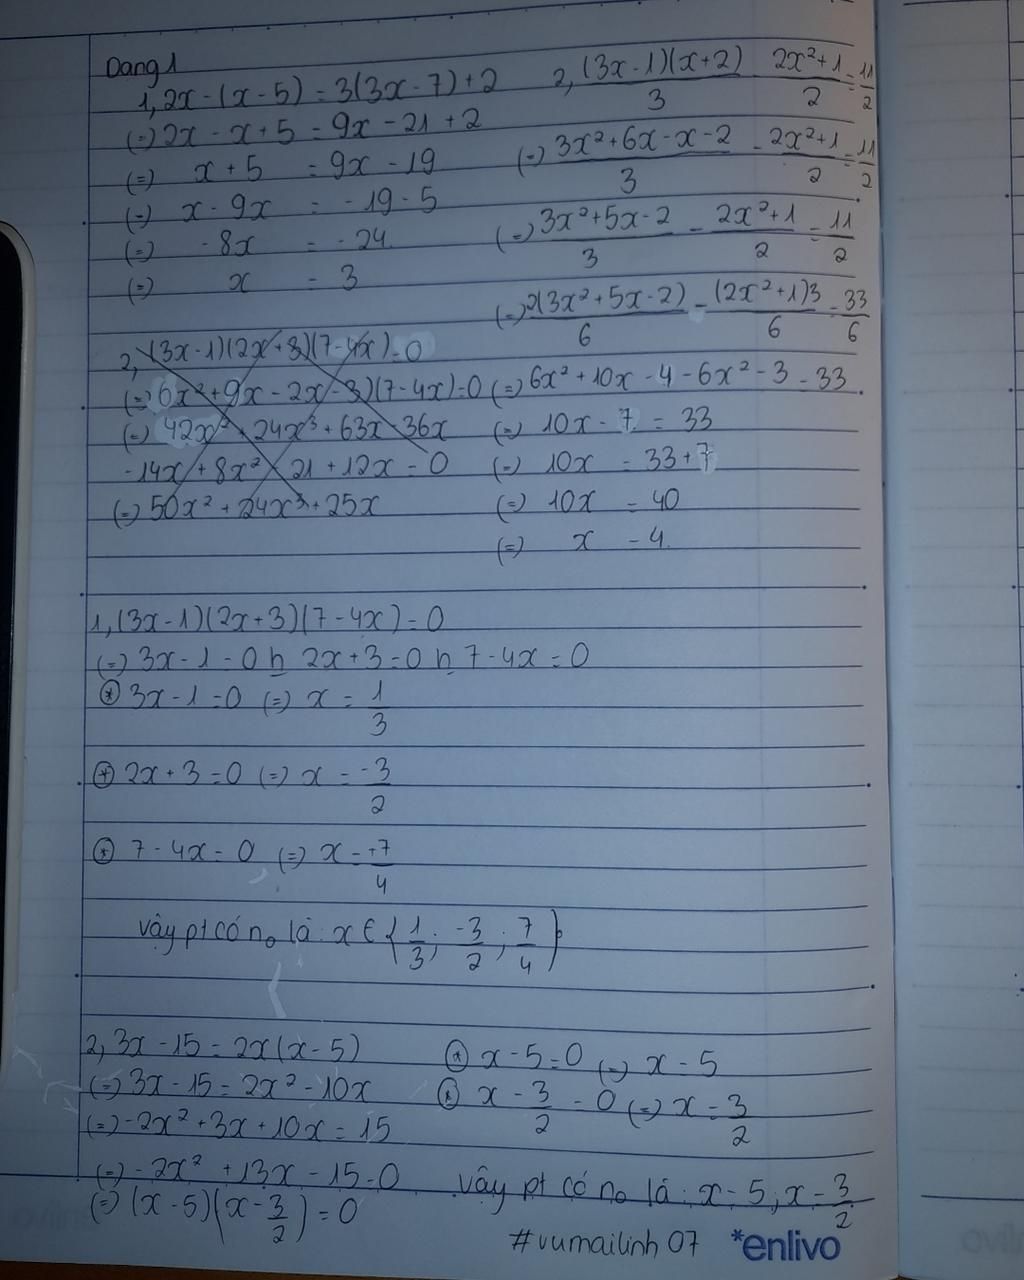 Dạng 1
1, 2x - (x - 5) = 3(3x - 7) + 2
(=) 2x - x + 5 = 9x - 21 + 2
(=) x + 5 = 9x - 19
(=) x - 9x = -19 - 5
(=) -8x = -24
(=) x = 3
2, (3x - 1)(x + 2)/3 - 2x² + 1/2 = 11/2
(=) 3x² + 6x - x - 2/3 - 2x² + 1/2 = 11/2
(=) 3x² + 5x - 2/3 - 2x² + 1/2 = 11/2
(=) 2(3x² + 5x - 2)/6 - (2x² + 1)3/6 = 33/6
(=) 6x² + 10x - 4 - 6x² - 3 = 33
(=) 10x - 7 = 33
(=) 10x = 33 + 7
(=) 10x = 40
(=) x = 4
2, (3x - 1)(2x + 3)(7 - 4x) = 0
(=) 6x² + 9x - 2x - 3)(7 - 4x) = 0
(=) 42x² + 24x³ + 63x - 36x
- 14x + 8x² - 21 + 12x = 0
(=) 50x² + 24x³ + 25x
1, (3x - 1)(2x + 3)(7 - 4x) = 0
(=) 3x - 1 = 0 h 2x + 3 = 0 h 7 - 4x = 0
⊛ 3x - 1 = 0 (=) x = 1/3
⊛ 2x + 3 = 0 (=) x = -3/2
⊛ 7 - 4x = 0 (=) x = +7/4
Vậy pt có no là: x ∈ {1/3; -3/2; 7/4}
2, 3x - 15 = 2x(x - 5)
(=) 3x - 15 = 2x² - 10x
(=) -2x² + 3x + 10x = 15
(=) -2x² + 13x - 15 = 0
(=) (x - 5)(x - 3/2) = 0
⊛ x - 5 = 0 (=) x = 5
⊛ x - 3/2 = 0 (=) x = 3/2
Vậy pt có no là: x = 5, x = 3/2
#vumailinh 07
*enlivo